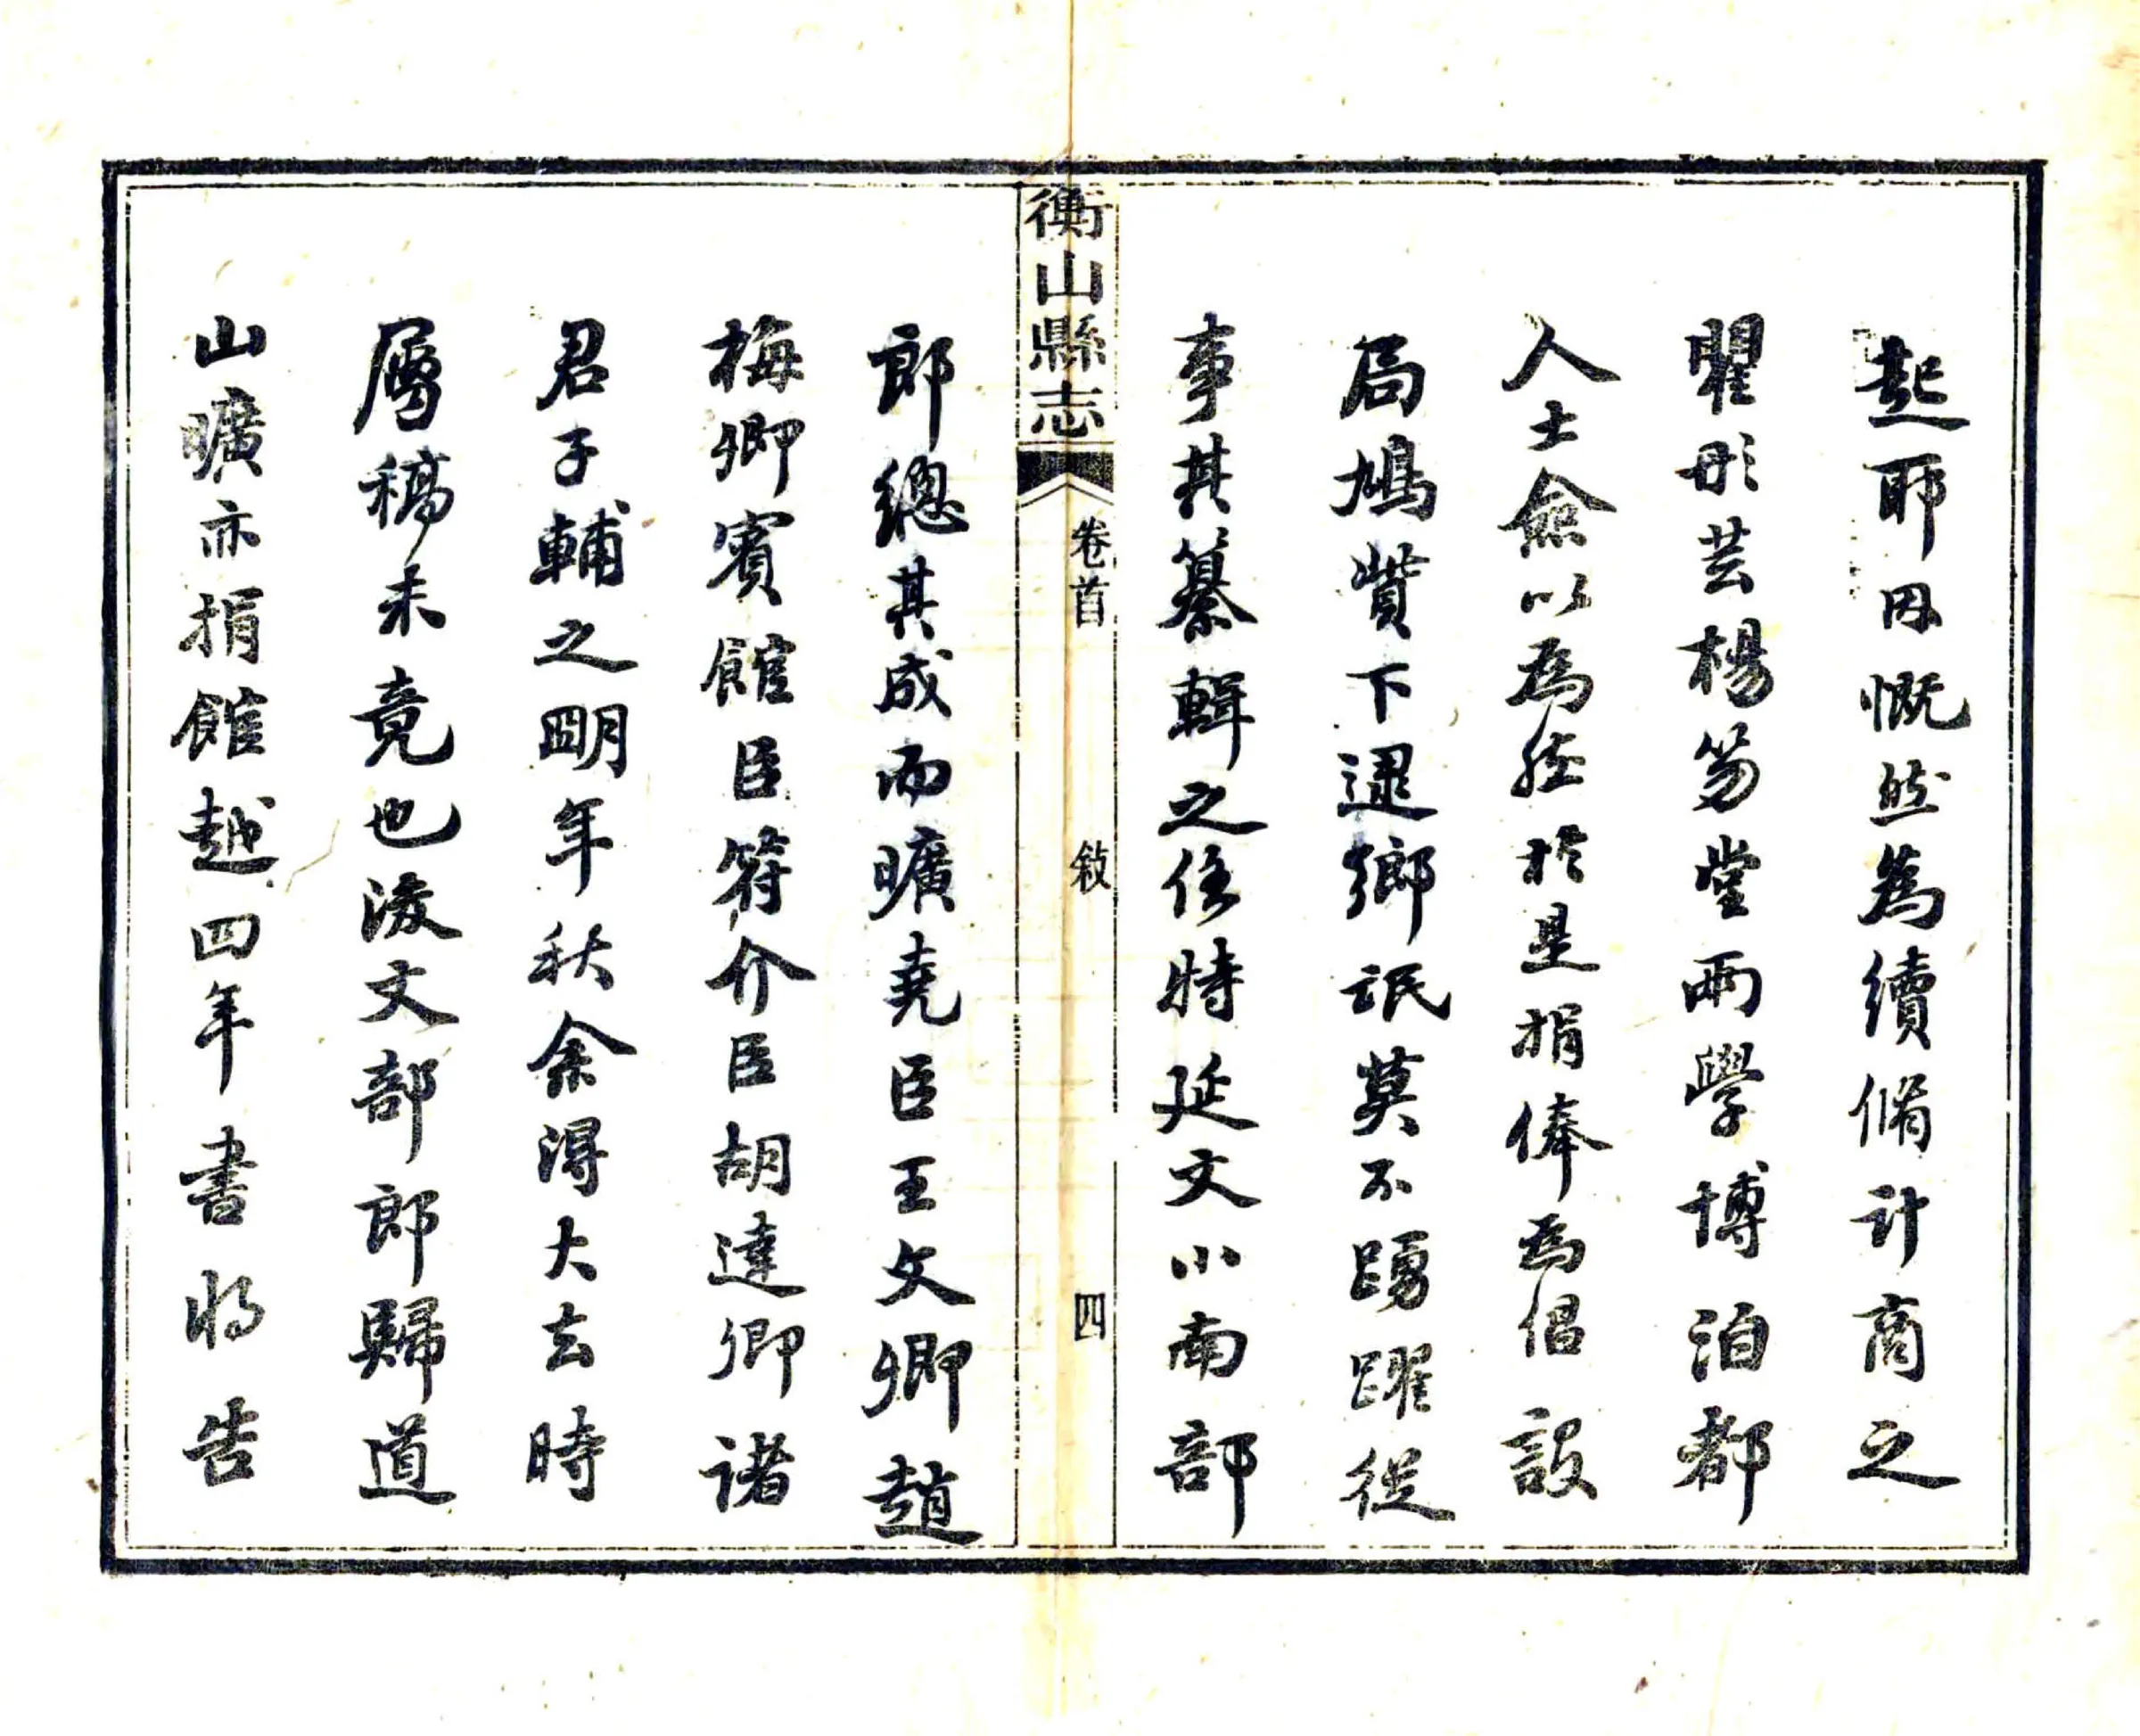 起耶因慨然為續脩計商之
瞿彤芸楊笏堂兩學博泊都
人士僉以為然於是捐俸為倡設
局鳩貲下逮鄉氓莫不踴躍從
事其纂輯之任特延文小南部
衡山縣志
卷首
敘
四
郎總其成而曠堯臣王文卿趙
梅卿賓館臣符介臣胡達卿諸
君子輔之明年秋余得大去時
屬稿未竟也浚文部郎歸道
山曠亦捐館越四年書將告